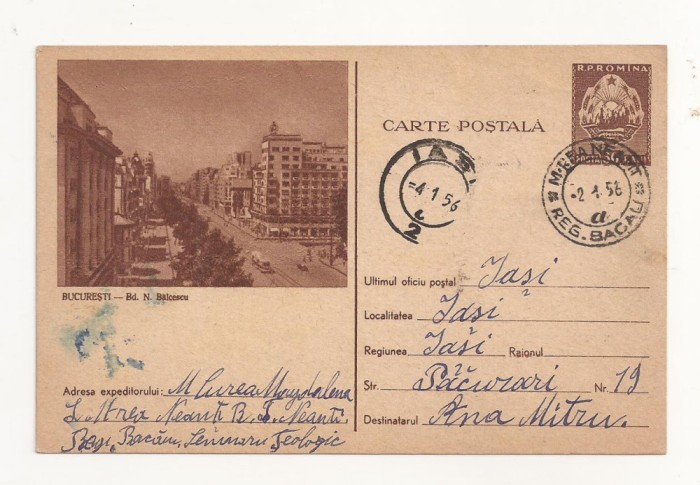 R.P.ROMINA
CARTE POȘTALĂ
POSTA
IAȘI
-4.1 56
2
M-REA NEAMT
-2.1.56
a
REG. BACAU
BUCUREȘTI — Bd. N. Bălcescu
Ultimul oficiu poștal Iași
Localitatea Iași
Regiunea Iași Raionul
Str. Păcurari Nr. 19
Destinatarul Ana Mitru.
Adresa expeditorului: M Curea Magdalena
Neamț
Reg. Bacău, Seminaru Teologic